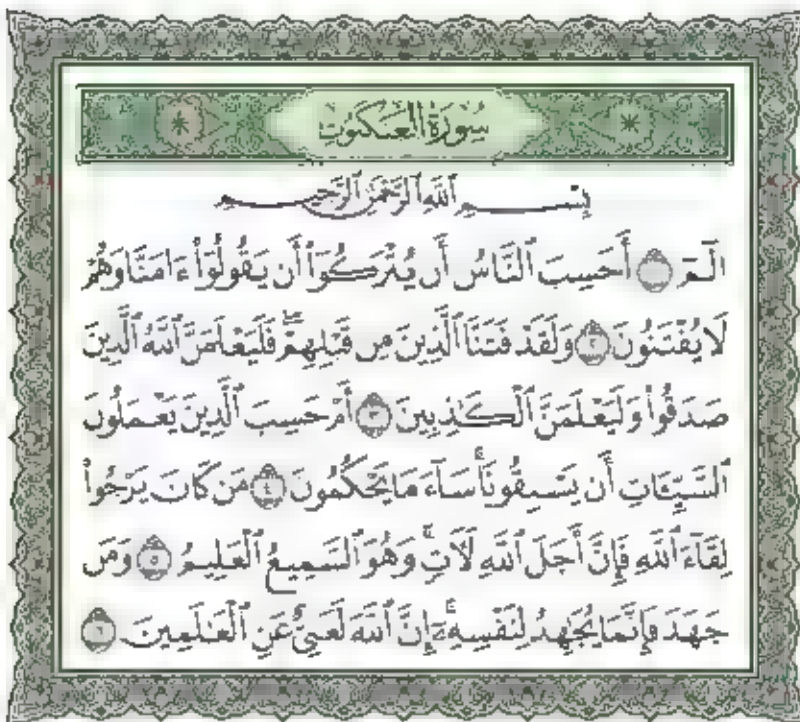 سُورَةُ الْعَنكَبُوتِ
بِسْمِ ٱللَّهِ ٱلرَّحْمَٰنِ ٱلرَّحِيمِ
الٓمٓ ١ أَحَسِبَ ٱلنَّاسُ أَن يُتْرَكُوٓا۟ أَن يَقُولُوٓا۟ ءَامَنَّا وَهُمْ
لَا يُفْتَنُونَ ٢ وَلَقَدْ فَتَنَّا ٱلَّذِينَ مِن قَبْلِهِمْ ۖ فَلَيَعْلَمَنَّ ٱللَّهُ ٱلَّذِينَ
صَدَقُوا۟ وَلَيَعْلَمَنَّ ٱلْكَٰذِبِينَ ٣ أَمْ حَسِبَ ٱلَّذِينَ يَعْمَلُونَ
ٱلسَّيِّـَٔاتِ أَن يَسْبِقُونَا ۚ سَآءَ مَا يَحْكُمُونَ ٤ مَن كَانَ يَرْجُوا۟
لِقَآءَ ٱللَّهِ فَإِنَّ أَجَلَ ٱللَّهِ لَءَاتٍ ۚ وَهُوَ ٱلسَّمِيعُ ٱلْعَلِيمُ ٥ وَمَن
جَٰهَدَ فَإِنَّمَا يُجَٰهِدُ لِنَفْسِهِۦٓ ۚ إِنَّ ٱللَّهَ لَغَنِىٌّ عَنِ ٱلْعَٰلَمِينَ ٦